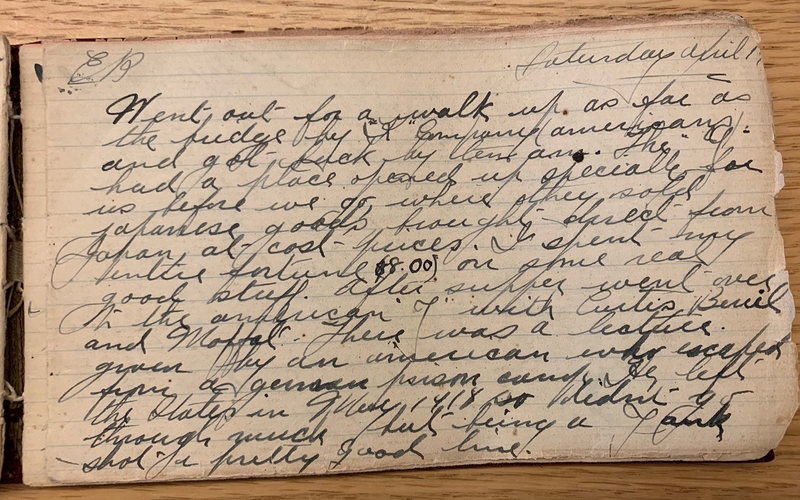 EB
Saturday April 1
Went out for a walk up as far as
the bridge by "L" Company (american)
and got back by ten am. The "Y"
had a place opened up specially for
us before we go where they sold
japanese goods brought direct from
Japan at cost prices. I spent my
entire fortune ($8.00) on some real
good stuff. After supper went over
to the american "Y" with Curtis
and Moffat. There was a lecture
given by an american who escaped
from a german prison camp. He left
the States in 1918 so didnt go
through much but being a Yank
shot a pretty good line.